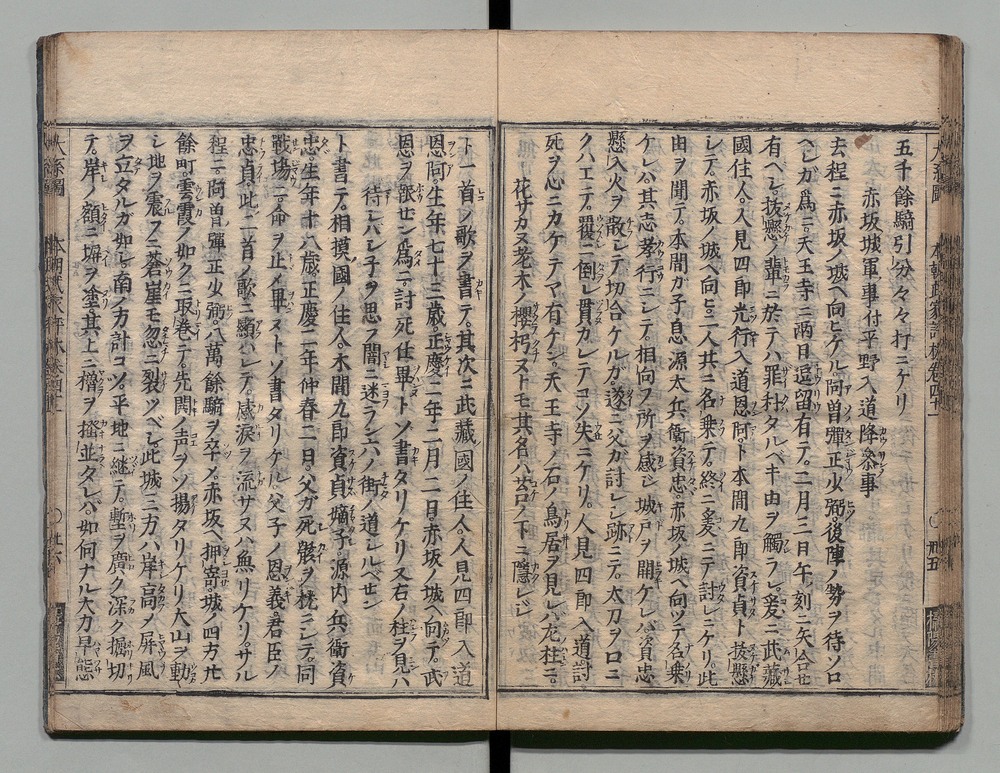 五千餘騎引分々々打ニケリ
赤坂城軍事付平野入道降參事
去程ニ赤坂ノ城ヘ向ヒケル阿曽彈正少弼後陣ノ勢ヲ待ソロ
ヘンガ爲ニ天王寺ニ両日逗留有テ二月二日午ノ刻ニ矢合セ
有ヘシ拔懸ノ輩ニ於テハ罪科タルベキ由ヲ觸ラル爰ニ武藏
國住人人見四郎光行入道恩阿ト本間九郎資貞ト拔懸
シテ赤坂ノ城ヘ向ヒ二人共ニ名乗テ終ニ爰ニテ討レニケリ此
由ヲ聞テ本間が子息源太兵衛資忠赤坂ノ城ヘ向ツテ名乗
ケレハ其志孝行ニシテ相向フ所ヲ感ジ城戸ヲ開ケレバ資忠
懸入火ヲ散シテ切合ケルガ遂ニ父が討レシ跡ニテ太刀ヲ口ニ
クハエテ覆ニ倒レ貫カレテコソ失ニケリ人見四郎入道討
死ヲ心ニカケテマ有ケン天王寺ノ石ノ鳥居ヲ見レバ左柱ニ
花サカヌ老木ノ櫻朽ヌトモ其名ハ苔ノ下ニ隱レジ
ト一首ノ歌ヲ書テ其次ニ武藏國ノ住人人見四郎入道
恩阿生年七十三歳正慶二年二月二日赤坂ノ城ヘ向テ武
恩ヲ報センカ爲ニ討死仕畢トソ書タリケリ又右ノ柱ヲ見ハ
待シバシ子ヲ思フ闇ニ迷ラン六ノ街ノ道シルベセン
ト書テ相摸國ノ住人本間九郎資貞嫡子源内兵衛資
忠生年十八歳正慶二年仲春二日父ガ死骸ヲ枕ニシテ同
戰場ニ命ヲ止メ畢ヌトソ書タリケル父子ノ恩義君臣ノ
忠貞此二首ノ歌ニ顯ハレテ感涙ヲ流サヌハ無リケリサル
程ニ阿曽彈正少弼八萬餘騎ヲ卒メ赤坂ヘ押寄城ノ四方廿
餘町雲霞ノ如クニ取巻テ先鬨ノ声ヲソ揚タリケリ大山ヲ動
シ地ヲ震フニ蒼崖モ忽ニ裂ツベシ此城三方ハ岸高メ屏風
ヲ立タルガ如シ南ノ方計コソ平地ニ継テ塹ヲ廣ク深ク掘切
テ岸ノ額ニ塀ヲ塗其上ニ櫓ヲ搔並タレバ如何ナル大力早態